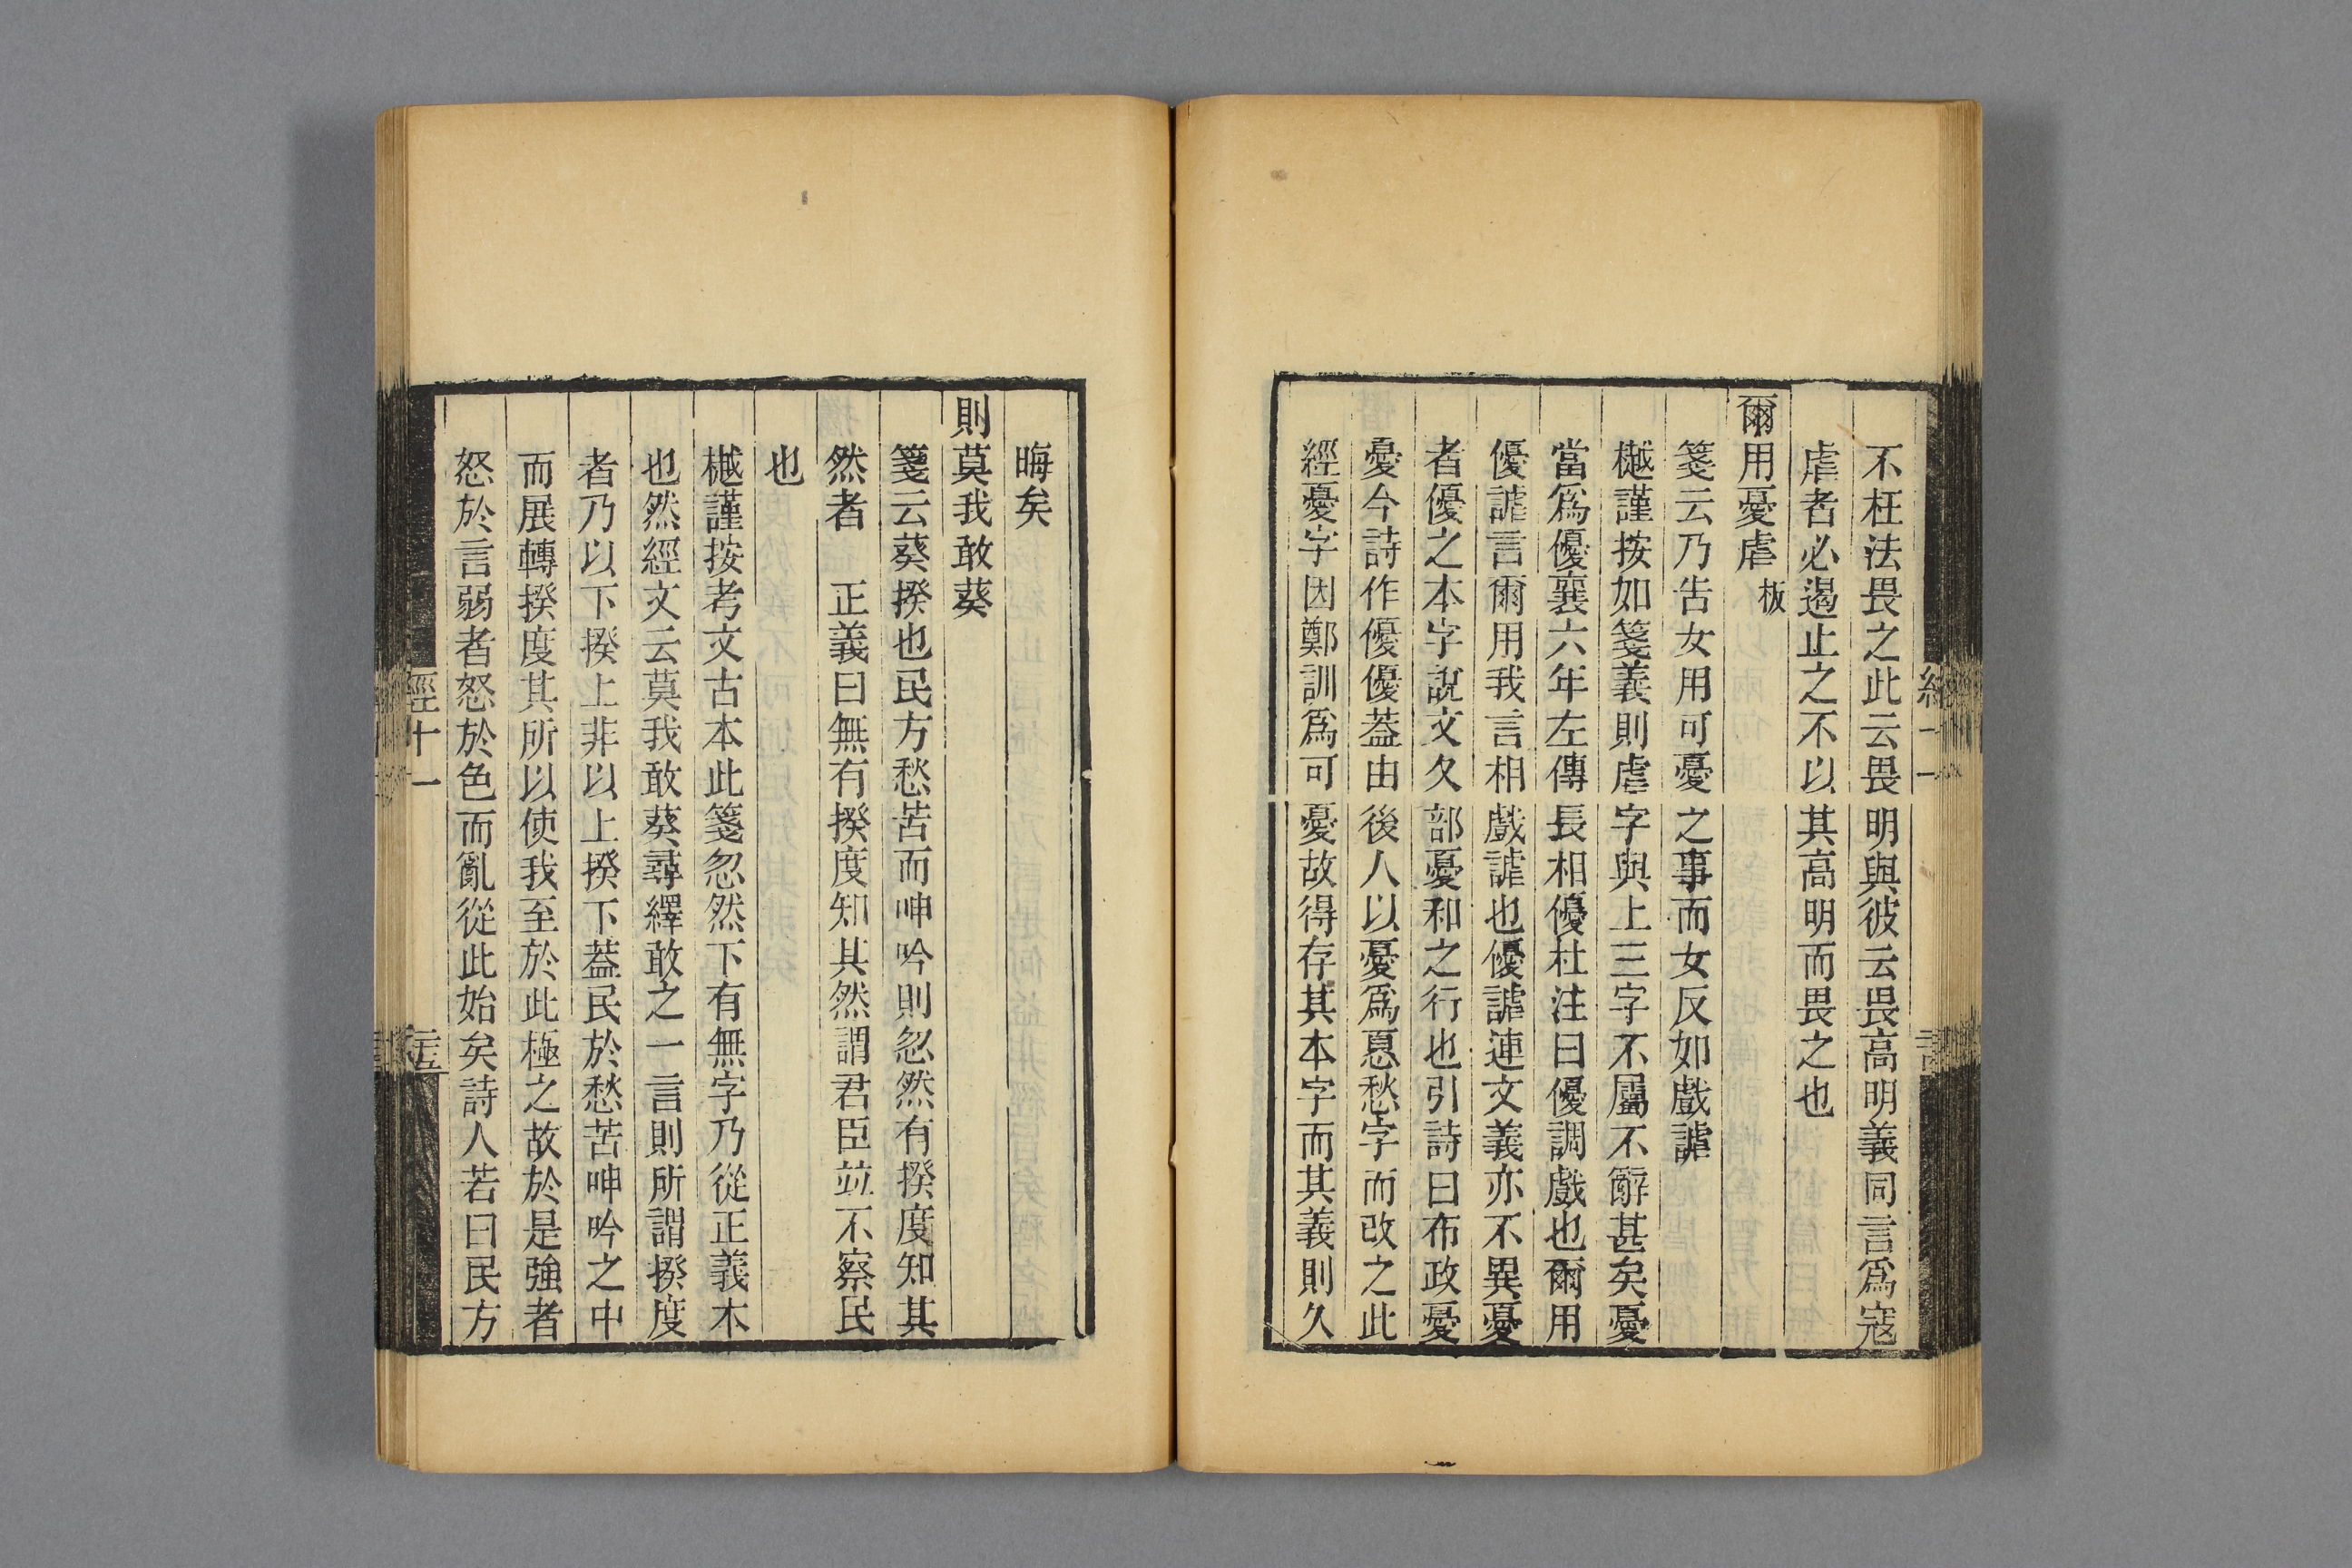 不枉法畏之此云畏明與彼云畏高明義同言爲寇
虐者必遏止之不以其高明而畏之也
爾用憂虐板
箋云乃告女用可憂之事而女反如戲謔
樾謹按如箋義則虐字與上三字不屬不辭甚矣憂
當爲優襄六年左傳長相優杜注曰優調戲也爾用
優謔言爾用我言相戲謔也優謔連文義亦不異憂
者優之本字說文夊部憂和之行也引詩曰布政憂
憂今詩作優優葢由後人以憂爲惪愁字而改之此
經憂字因鄭訓爲可憂故得存其本字而其義則久
晦矣
則莫我敢葵
箋云葵揆也民方愁苦而呻吟則忽然有揆度知其
然者 正義曰無有揆度知其然謂君臣竝不察民
也
樾謹按考文古本此箋忽然下有無字乃從正義本
也然經文云莫我敢葵尋繹敢之一言則所謂揆度
者乃以下揆上非以上揆下葢民於愁苦呻吟之中
而展轉揆度其所以使我至於此極之故於是強者
怒於言弱者怒於色而亂從此始矣詩人若曰民方
經十一